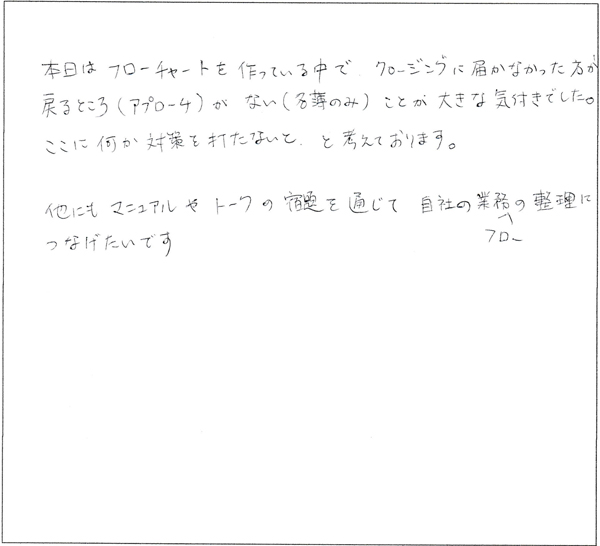 本日は フローチャートを 作っている中で、クロージングに届かなかった方が
戻るところ(アプローチ)が ない(名簿のみ)ことが 大きな気付きでした。
ここに 何か 対策を打たないと、と 考えております。
他にも マニュアルや トークの 宿題を 通じて 自社の業務フローの整理に
つなげたいです